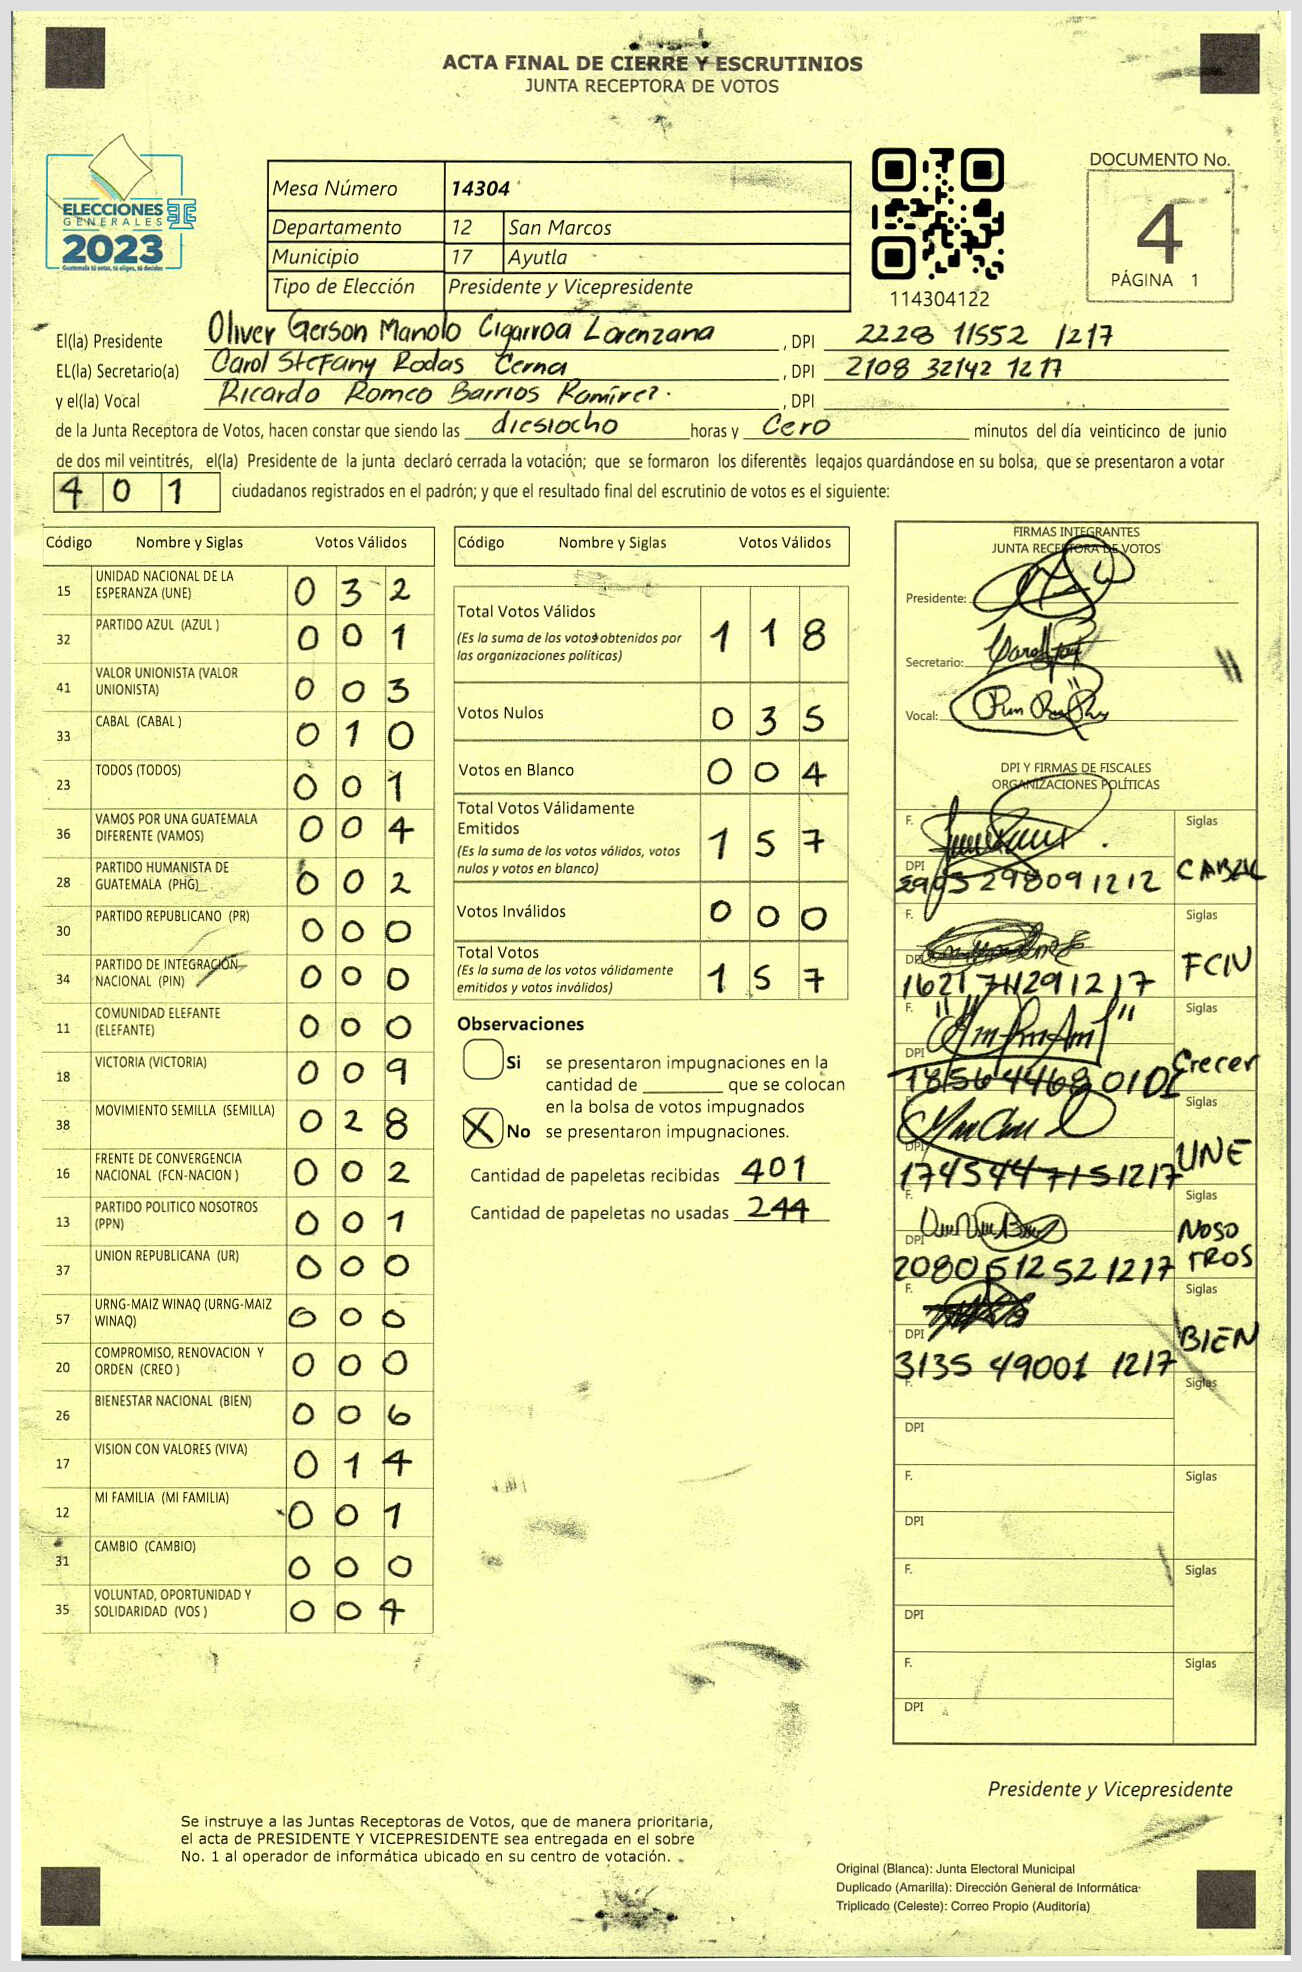 ACTA FINAL DE CIERRE Y ESCRUTINIOS
JUNTA RECEPTORA DE VOTOS
ELECCIONES
GENERALES
2023
Guatemala tú votas, tú eliges, tú decides
Mesa Número 14304
Departamento 12 San Marcos
Municipio 17 Ayutla
Tipo de Elección Presidente y Vicepresidente
114304122
DOCUMENTO No.
4
PÁGINA 1
El(la) Presidente Oliver Gerson Manolo Cigarroa Lorenzana , DPI 2228 11552 1217
EL(la) Secretario(a) Carol Stefany Rodas Cerna , DPI 2108 32142 1217
y el(la) Vocal Ricardo Romeo Barrios Ramírez. , DPI
de la Junta Receptora de Votos, hacen constar que siendo las diesiocho horas y Cero minutos del día veinticinco de junio
de dos mil veintitrés, el(la) Presidente de la junta declaró cerrada la votación; que se formaron los diferentes legajos guardándose en su bolsa, que se presentaron a votar
401 ciudadanos registrados en el padrón; y que el resultado final del escrutinio de votos es el siguiente:
Código Nombre y Siglas Votos Válidos
15 UNIDAD NACIONAL DE LA ESPERANZA (UNE) 032
32 PARTIDO AZUL (AZUL ) 001
41 VALOR UNIONISTA (VALOR UNIONISTA) 003
33 CABAL (CABAL ) 010
23 TODOS (TODOS) 001
36 VAMOS POR UNA GUATEMALA DIFERENTE (VAMOS) 004
28 PARTIDO HUMANISTA DE GUATEMALA (PHG) 002
30 PARTIDO REPUBLICANO (PR) 000
34 PARTIDO DE INTEGRACIÓN NACIONAL (PIN) 000
11 COMUNIDAD ELEFANTE (ELEFANTE) 000
18 VICTORIA (VICTORIA) 009
38 MOVIMIENTO SEMILLA (SEMILLA) 028
16 FRENTE DE CONVERGENCIA NACIONAL (FCN-NACION ) 002
13 PARTIDO POLITICO NOSOTROS (PPN) 001
37 UNION REPUBLICANA (UR) 000
57 URNG-MAIZ WINAQ (URNG-MAIZ WINAQ) 000
20 COMPROMISO, RENOVACION Y ORDEN (CREO ) 000
26 BIENESTAR NACIONAL (BIEN) 006
17 VISION CON VALORES (VIVA) 014
12 MI FAMILIA (MI FAMILIA) 001
31 CAMBIO (CAMBIO) 000
35 VOLUNTAD, OPORTUNIDAD Y SOLIDARIDAD (VOS ) 004
Código Nombre y Siglas Votos Válidos
Total Votos Válidos 118
(Es la suma de los votos obtenidos por
las organizaciones políticas)
Votos Nulos 035
Votos en Blanco 004
Total Votos Válidamente
Emitidos 157
(Es la suma de los votos válidos, votos
nulos y votos en blanco)
Votos Inválidos 000
Total Votos 157
(Es la suma de los votos válidamente
emitidos y votos inválidos)
Observaciones
Si se presentaron impugnaciones en la
cantidad de ________ que se colocan
en la bolsa de votos impugnados
X No se presentaron impugnaciones.
Cantidad de papeletas recibidas 401
Cantidad de papeletas no usadas 244
FIRMAS INTEGRANTES
JUNTA RECEPTORA DE VOTOS
Presidente:
Secretario:
Vocal:
DPI Y FIRMAS DE FISCALES
ORGANIZACIONES POLÍTICAS
F. Siglas
DPI CABAL
F. Siglas
DPI 1621711291217 FCN
F. Siglas
DPI 1856446801 Crecer
F. Siglas
DPI 1745447151217 UNE
F. Siglas
DPI 2080512521217 NOSO
TROS
F. Siglas
DPI 3135 49001 1217 BIEN
F. Siglas
DPI
F. Siglas
DPI
F. Siglas
DPI
F. Siglas
DPI
Presidente y Vicepresidente
Se instruye a las Juntas Receptoras de Votos, que de manera prioritaria,
el acta de PRESIDENTE Y VICEPRESIDENTE sea entregada en el sobre
No. 1 al operador de informática ubicado en su centro de votación.
Original (Blanca): Junta Electoral Municipal
Duplicado (Amarilla): Dirección General de Informática
Triplicado (Celeste): Correo Propio (Auditoría)